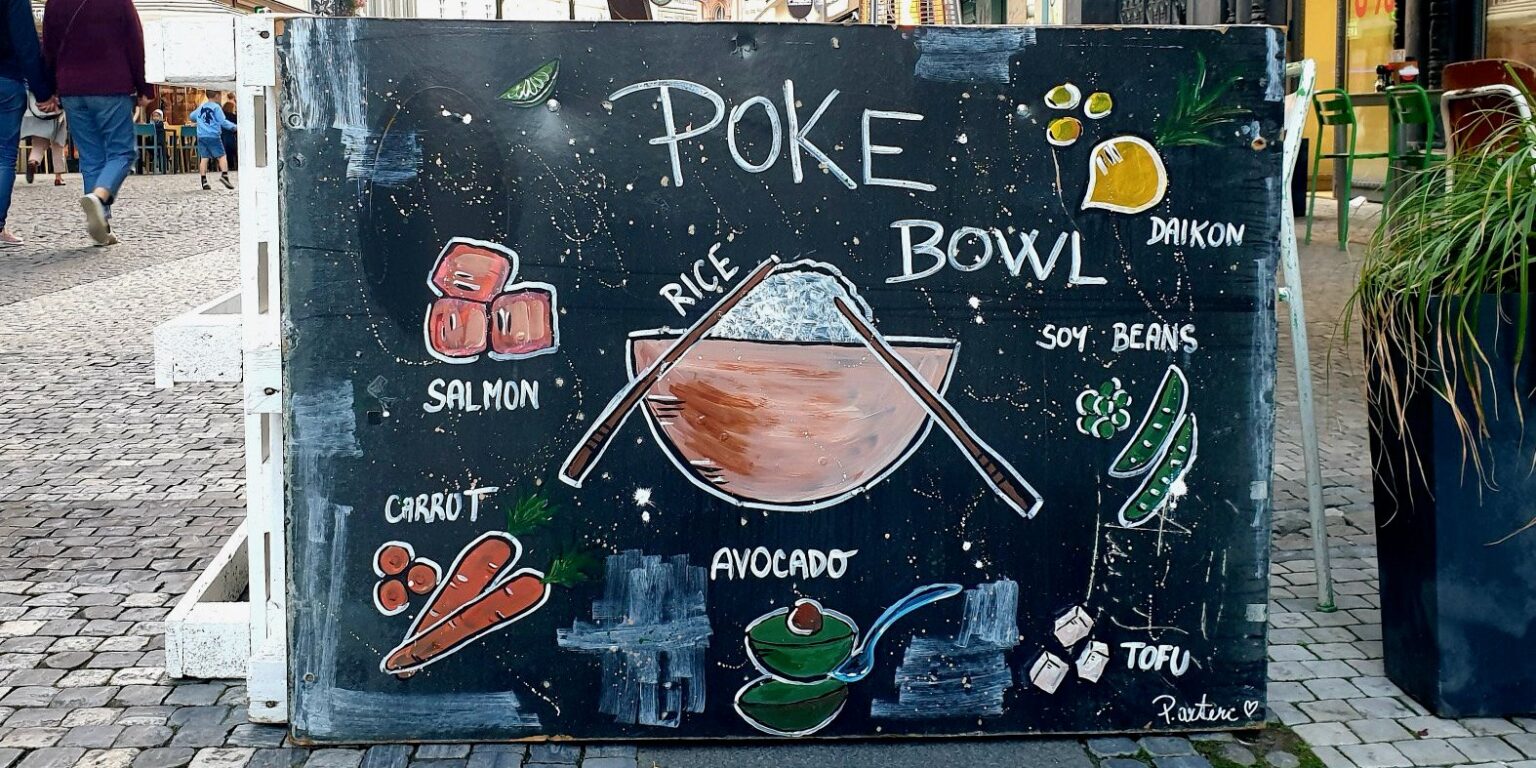 POKE
BOWL
DAIKON
RICE
SOY BEANS
SALMON
CARROT
AVOCADO
TOFU